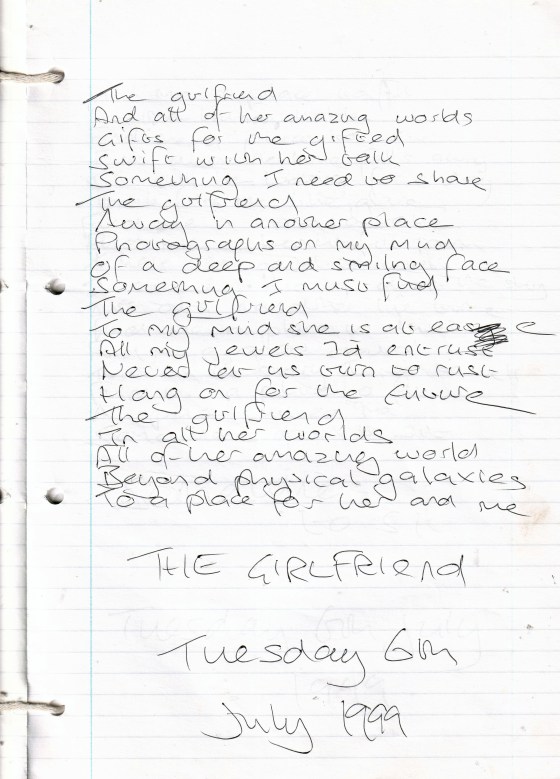 The girlfriend
And all of her amazing worlds
Gifts for the gifted
Swift with her talk
Something I need to share
The girlfriend
Away in another place
Photographs on my mind
Of a deep and smiling face
Something I must find
The girlfriend
To my mind she is at ease
All my jewels I'd entrust
Never let us turn to rust
Hang on for the future
The girlfriend
In all her worlds
All of her amazing world
Beyond physical galaxies
To a place for her and me
THE GIRLFRIEND
Tuesday 6th
July 1999